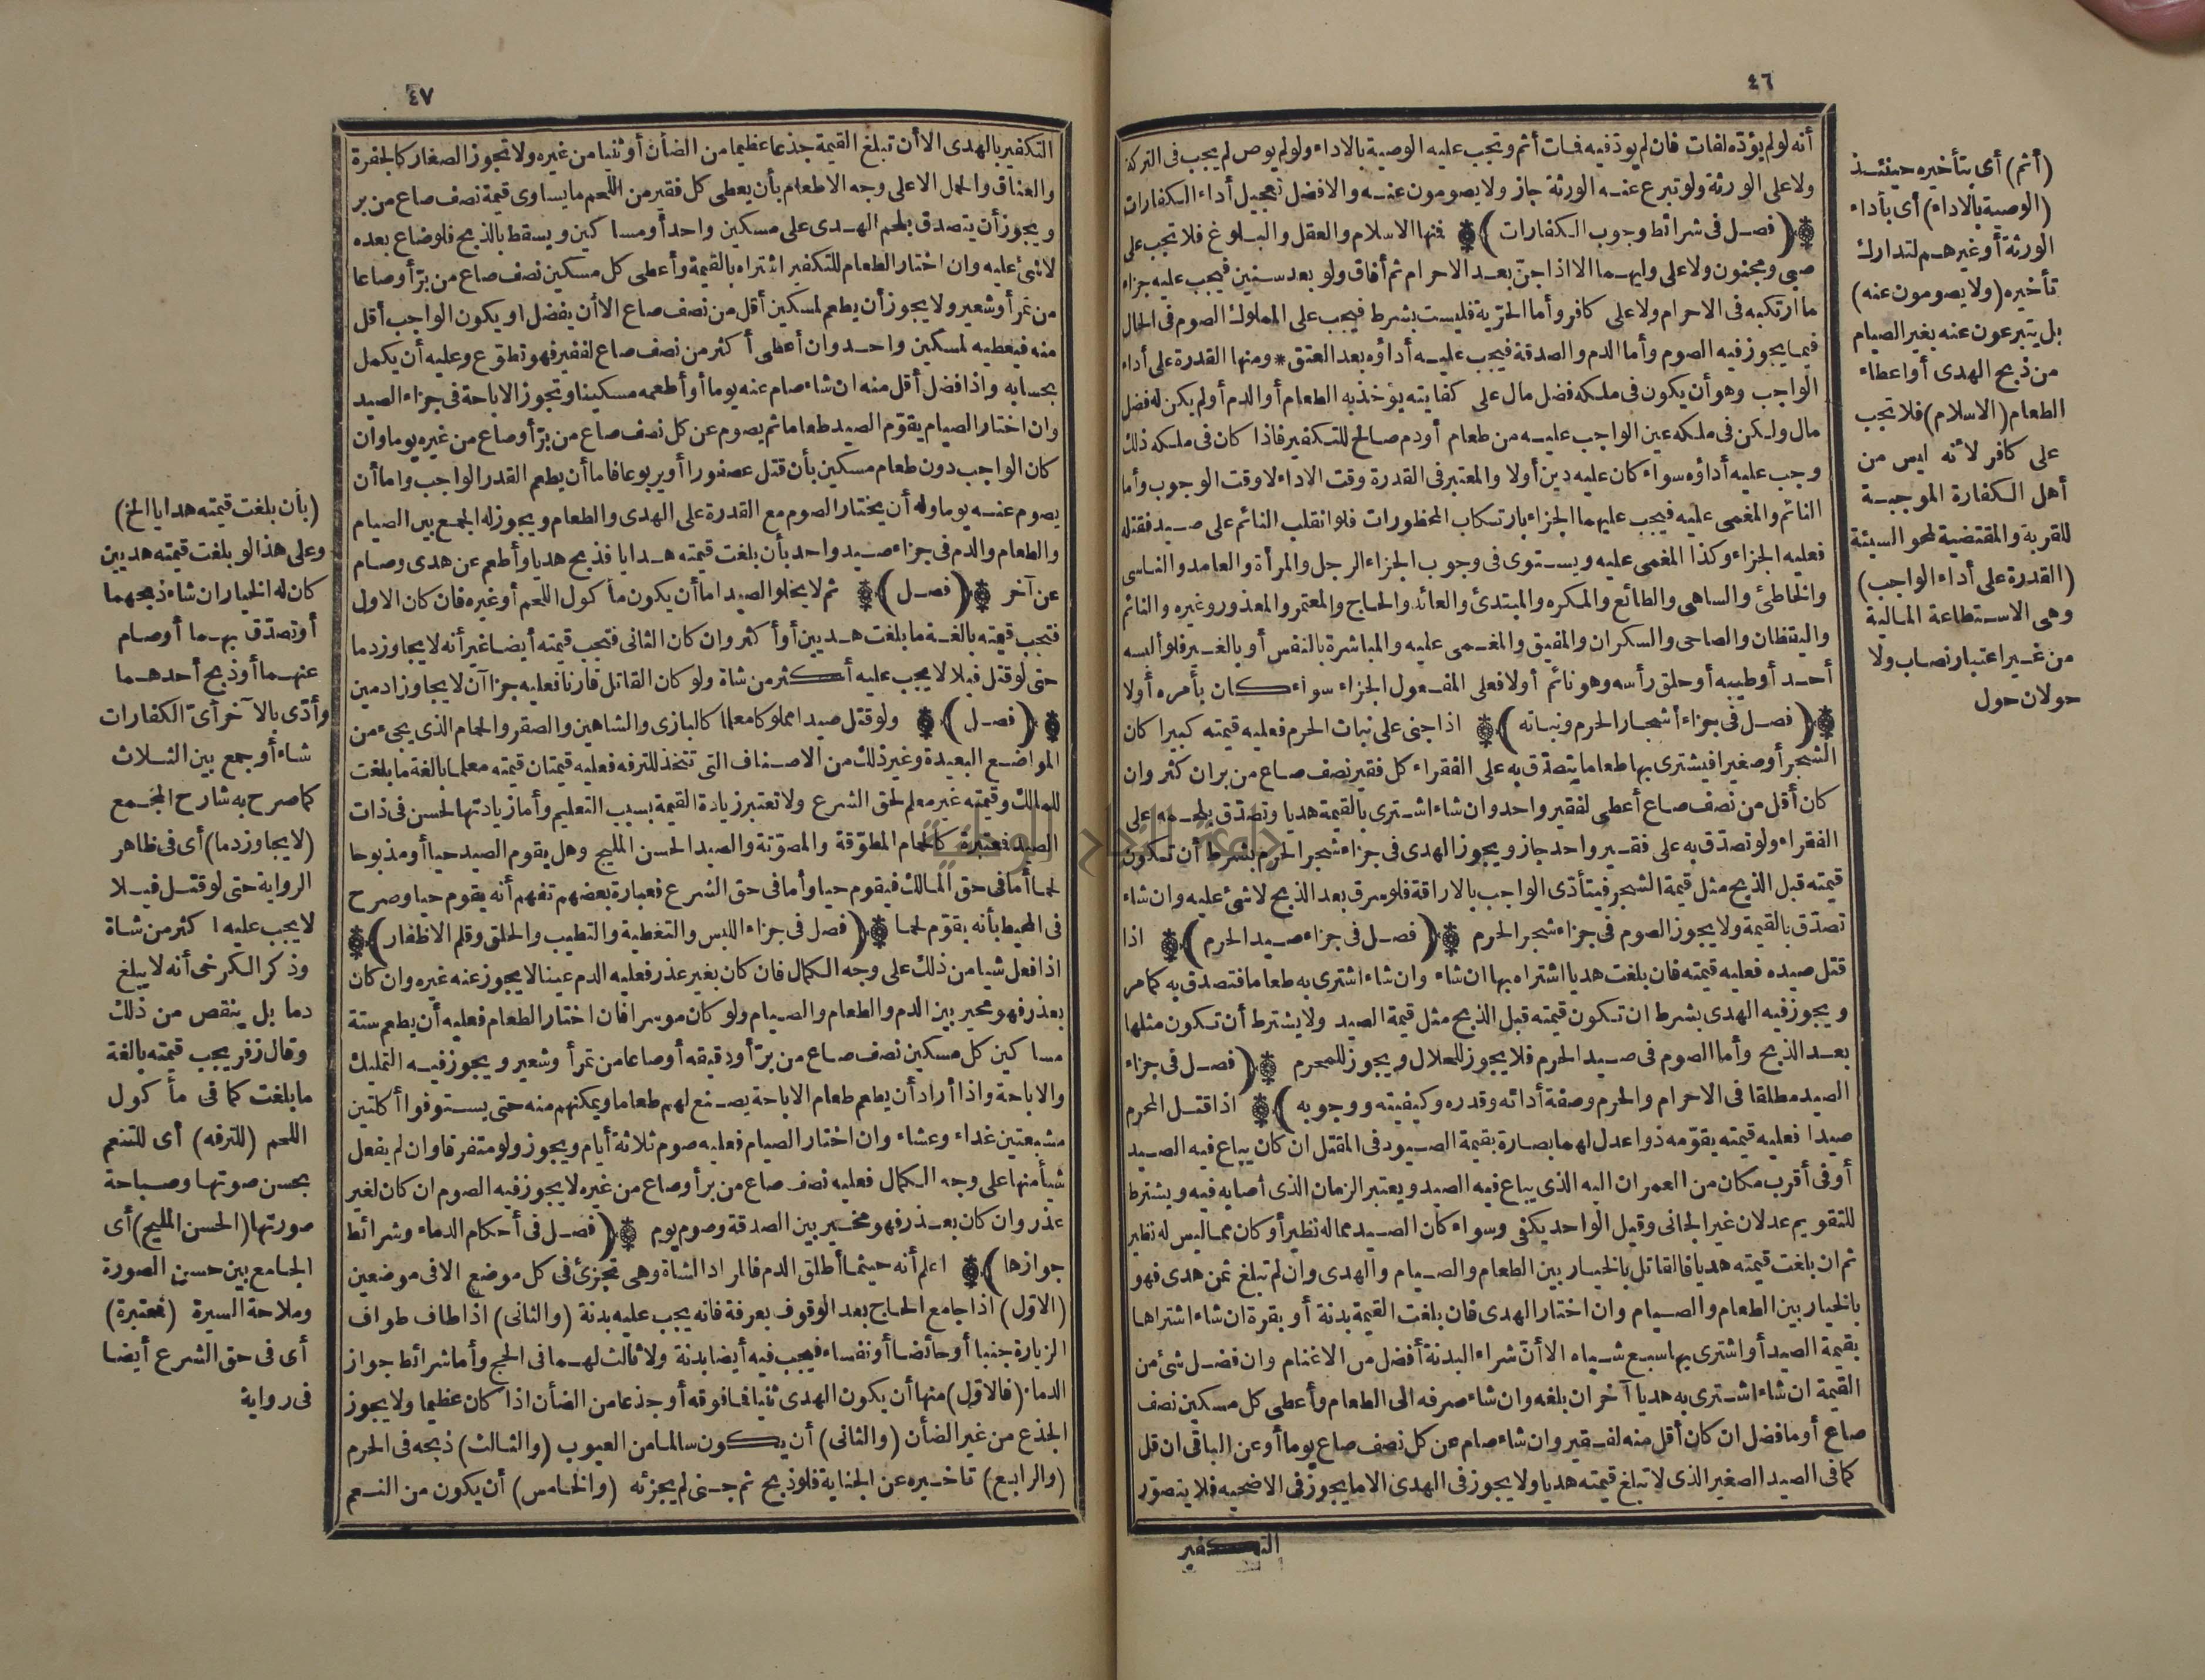 ٤٦
أنه لو لم يؤده لفات فان لم يؤد فيه فمات أثم وتجب عليه الوصية بالاداء ولو لم يوص لم يجب فى التركة
ولا على الورثة ولو تبرع عنه الورثة جاز ولا يصومون عنه والافضل تعجيل أداء الكفارات
(فصل فى شرائط وجوب الكفارات) فمنها الاسلام والعقل والبلوغ فلا تجب على
صبى ومجنون ولا على وليهما الا اذا جنّ بعد الاحرام ثم أفاق ولو بعد سنين فيجب عليه جزاء
ما ارتكبه فى الاحرام ولا على كافر وأما الحرّية فليست بشرط فيجب على المملوك الصوم فى الحال
فيما يجوز فيه الصوم وأما الدم والصدقة فيجب عليه أداؤه بعد العتق * ومنها القدرة على أداء
الواجب وهو أن يكون فى ملكه فضل مال على كفايته يؤخذ به الطعام أو الدم أو لم يكن له فضل
مال ولكن فى ملكه عين الواجب عليه من طعام أو دم صالح للتكفير فاذا كان فى ملكه ذلك
وجب عليه أداؤه سواء كان عليه دين أولا والمعتبر فى القدرة وقت الاداء لا وقت الوجوب وأما
النائم والمغمى عليه فيجب عليهما الجزاء بارتكاب المحظورات فلو انقلب النائم على صيد فقتله
فعليه الجزاء وكذا المغمى عليه ويستوى فى وجوب الجزاء الرجل والمرأة والعامد والناسى
والخاطئ والساهى والطائع والمكره والمبتدئ والعائد والحاج والمعتمر والمعذور وغيره والنائم
واليقظان والصاحى والسكران والمفيق والمغمى عليه والمباشرة بالنفس أو بالغير فلو ألبسه
أحد أو طيبه أو حلق رأسه وهو نائم أولا فعلى المفعول الجزاء سواء كان بأمره أولا
(فصل فى جزاء أشجار الحرم ونباته) اذا جنى على نبات الحرم فعليه قيمته كبيرا كان
الشجر أو صغيرا فيشترى بها طعاما يتصدّق به على الفقراء كل فقير نصف صاع من بر ان كثر وان
كان أقل من نصف صاع أعطى لفقير واحد وان شاء اشترى بالقيمة هديا وتصدّق بلحمه على
الفقراء ولو تصدّق به على فقير واحد جاز ويجوز الهدى فى جزاء شجر الحرم بشرط أن تكون
قيمته قبل الذبح مثل قيمة الشجر فيتأدّى الواجب بالاراقة فلو سرق بعد الذبح لا شئ عليه وان شاء
تصدّق بالقيمة ولا يجوز الصوم فى جزاء شجر الحرم (فصل فى جزاء صيد الحرم) اذا
قتل صيده فعليه قيمته فان بلغت هديا اشتراه بها ان شاء وان شاء اشترى به طعاما فتصدق به كما مر
ويجوز فيه الهدى بشرط ان تكون قيمته قبل الذبح مثل قيمة الصيد ولا يشترط أن تكون مثلها
بعد الذبح وأما الصوم فى صيد الحرم فلا يجوز للحلال ويجوز للمحرم (فصل فى جزاء
الصيد مطلقا فى الاحرام والحرم وصفة أدائه وقدره وكيفيته ووجوبه) اذا قتل المحرم
صيدا فعليه قيمته يقوّمه ذوا عدل لهما بصارة بقيمة الصيود فى المقتل ان كان يباع فيه الصيد
أو فى أقرب مكان من العمران اليه الذى يباع فيه الصيد ويعتبر الزمان الذى أصابه فيه ويشترط
للتقويم عدلان غير الجانى وقيل الواحد يكفى وسواء كان الصيد مما له نظير أو كان مما ليس له نظير
ثم ان بلغت قيمته هديا فالقاتل بالخيار بين الطعام والصيام والهدى وان لم تبلغ ثمن هدى فهو
بالخيار بين الطعام والصيام وان اختار الهدى فان بلغت القيمة بدنة أو بقرة ان شاء اشتراها
بقيمة الصيد أو اشترى بها سبع شياه الا أنّ شراء البدنة أفضل من الاغنام وان فضل شئ من
القيمة ان شاء اشترى به هديا آخر ان بلغه وان شاء صرفه الى الطعام وأعطى كل مسكين نصف
صاع أو ما فضل ان كان أقل منه لفقير وان شاء صام عن كل نصف صاع يوما أو عن الباقى ان قل
كما فى الصيد الصغير الذى لا تبلغ قيمته هديا ولا يجوز فى الهدى الا ما يجوز فى الاضحيه فلا يتصوّر
التكفير
(أثم) أى بتأخيره حينئذ
(الوصية بالاداء) أى بأداء
الورثة أو غيرهم لتدارك
تأخيره (ولا يصومون عنه)
بل يتبرعون عنه بغير الصيام
من ذبح الهدى أو اعطاء
الطعام (الاسلام) فلا تجب
على كافر لأنه ليس من
أهل الكفارة الموجبة
للقربة والمقتضية لمحو السيئة
(القدرة على أداء الواجب)
وهى الاستطاعة المالية
من غير اعتبار نصاب ولا
حولان حول
٤٧
التكفير بالهدى الا أن تبلغ القيمة جذعا عظيما من الضأن أو ثنيا من غيره ولا تجوز الصغار كالجفرة
والعناق والحمل الا على وجه الاطعام بأن يعطى كل فقير من اللحم ما يساوى قيمة نصف صاع من بر
ويجوز أن يتصدق بلحم الهدى على مسكين واحد أو مساكين ويسقط بالذبح فلو ضاع بعده
لا شئ عليه وان اختار الطعام للتكفير اشتراه بالقيمة وأعطى كل مسكين نصف صاع من برّ أو صاعا
من تمر أو شعير ولا يجوز أن يطعم لمسكين أقل من نصف صاع الا أن يفضل او يكون الواجب أقل
منه فيعطيه لمسكين واحد وان أعطى أكثر من نصف صاع لفقير فهو تطوّع وعليه أن يكمل
بحسابه واذا فضل أقل منه ان شاء صام عنه يوما أو أطعمه مسكينا وتجوز الاباحة فى جزاء الصيد
وان اختار الصيام يقوّم الصيد طعاما ثم يصوم عن كل نصف صاع من برّ أو صاع من غيره يوما وان
كان الواجب دون طعام مسكين بأن قتل عصفورا أو يربوعا فاما أن يطعم القدر الواجب واما أن
يصوم عنه يوما وله أن يختار الصوم مع القدرة على الهدى والطعام ويجوز له الجمع بين الصيام
والطعام والدم فى جزاء صيد واحد بأن بلغت قيمته هدايا فذبح هديا وأطعم عن هدى وصام
عن آخر (فصل) ثم لا يخلو الصيد اما أن يكون مأكول اللحم أو غيره فان كان الاول
فتجب قيمته بالغة ما بلغت هديين أو أكثر وان كان الثانى فتجب قيمته أيضا غير أنه لا يجاوز دما
حتى لو قتل فيلا لا يجب عليه أكثر من شاة ولو كان القاتل قارنا فعليه جزاآن لا يجاوزا دمين
(فصل) ولو قتل صيدا مملوكا معلما كالبازى والشاهين والصقر والحمام الذى يجىء من
المواضع البعيدة وغير ذلك من الاصناف التى تتخذ للترفه فعليه قيمتان قيمته معلما بالغة ما بلغت
للمالك وقيمته غير معلم لحق الشرع ولا تعتبر زيادة القيمة بسبب التعليم وأما زيادتها لحسن فى ذات
الصيد فمعتبرة كالحمام المطوّقة والمصوّتة والصيد الحسن المليح وهل يقوم الصيد حيا أو مذبوحا
لحما أما فى حق المالك فيقوم حيا وأما فى حق الشرع فعبارة بعضهم تفهم أنه يقوم حيا وصرح
فى المحيط بأنه يقوّم لحما (فصل فى جزاء اللبس والتغطية والتطيب والحلق وقلم الاظفار)
اذا فعل شيا من ذلك على وجه الكمال فان كان بغير عذر فعليه الدم عينا لا يجوز عنه غيره وان كان
بعذر فهو مخير بين الدم والطعام والصيام ولو كان موسرا فان اختار الطعام فعليه أن يطعم ستة
مساكين كل مسكين نصف صاع من برّ أو دقيقه أو صاعا من تمر أو شعير ويجوز فيه التمليك
والاباحة واذا أراد أن يطعم طعام الاباحة يصنع لهم طعاما ويمكنهم منه حتى يستوفوا أكلتين
مشبعتين غداء وعشاء وان اختار الصيام فعليه صوم ثلاثة أيام ويجوز ولو متفرقا وان لم يفعل
شيأ منها على وجه الكمال فعليه نصف صاع من بر أو صاع من غيره لا يجوز فيه الصوم ان كان لغير
عذر وان كان بعذر فهو مخير بين الصدقة وصوم يوم (فصل فى أحكام الدماء وشرائط
جوازها) اعلم أنه حيثما أطلق الدم فالمراد الشاة وهى تجزئ فى كل موضع الا فى موضعين
(الاوّل) اذا جامع الحاج بعد الوقوف بعرفة فانه يجب عليه بدنة (والثانى) اذا طاف طواف
الزيارة جنبا أو حائضا أو نفساء فيجب فيه أيضا بدنة ولا ثالث لهما فى الحج وأما شرائط جواز
الدماء (فالاوّل) منها أن يكون الهدى ثنيا فما فوقه أو جذعا من الضأن اذا كان عظيما ولا يجوز
الجذع من غير الضأن (والثانى) أن يكون سالما من العيوب (والثالث) ذبحه فى الحرم
(والرابع) تاخيره عن الجناية فلو ذبح ثم جنى لم يجزئه (والخامس) أن يكون من النعم
(بأن بلغت قيمته هدايا الخ)
وعلى هذا لو بلغت قيمته هديين
كان له الخيار ان شاء ذبحهما
أو تصدّق بهما أو صام
عنهما أو ذبح أحدهما
وأدّى بالآخر أىّ الكفارات
شاء أو جمع بين الثلاث
كما صرح به شارح المجمع
(لا يجاوز دما) أى فى ظاهر
الرواية حتى لو قتل فيلا
لا يجب عليه اكثر من شاة
وذكر الكرخى أنه لا يبلغ
دما بل ينقص من ذلك
وقال زفر يجب قيمته بالغة
ما بلغت كما فى مأكول
اللحم (للترفه) أى للتنعم
بحسن صوتها وصباحة
صورتها (الحسن المليح) أى
الجامع بين حسن الصورة
وملاحة السيرة (فمعتبرة)
أى فى حق الشرع أيضا
فى رواية